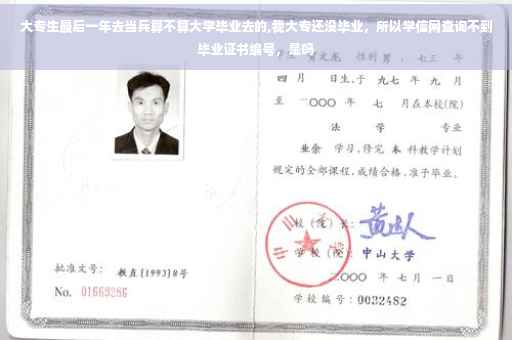 大专生最后一年去当兵算不算大学毕业去的,要大专还没毕业，所以学信网查询不到
毕业证书编号，是吗
性别男，七三 年
四 月 日生,于 九七 年 九 月
至 二〇〇〇 年 七 月在本校(院)
法 学 专业
业余 学习,修完 本 科教学计划
规定的全部课程,成绩合格,准予毕业。
校（院）长:
学 校（院）: 中山大学
二〇〇〇 年 七 月 一 日
批准文号： 教直(1993)8号
No. 01669286
学校编号：0032482